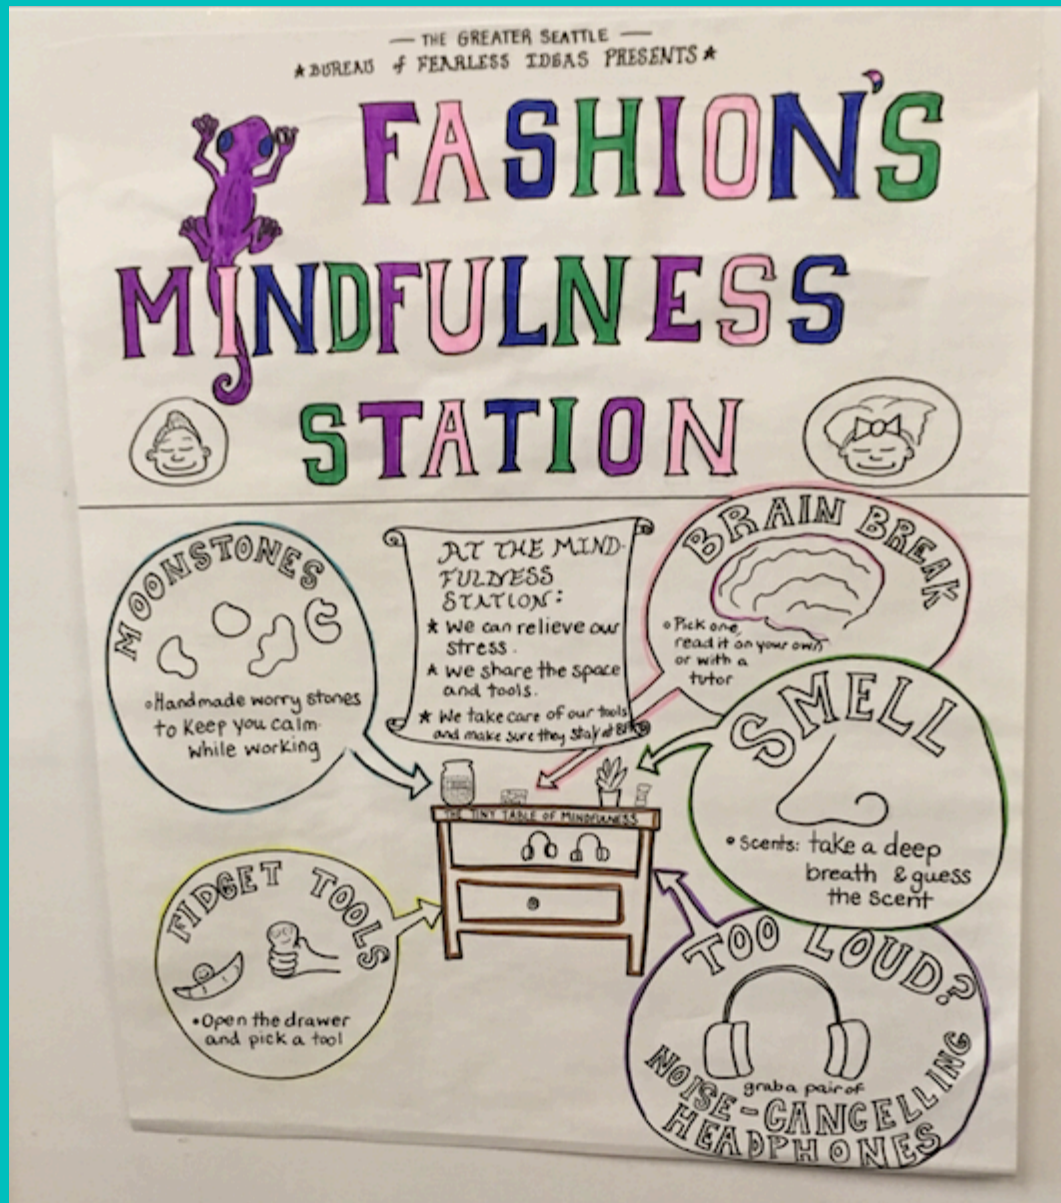 — THE GREATER SEATTLE —
★ BUREAU of FEARLESS IDEAS PRESENTS ★
FASHION'S
MINDFULNESS
STATION
MOONSTONES
• Handmade worry stones
to keep you calm
while working
AT THE MIND-
FULNESS
STATION:
★ We can relieve our
stress.
★ We share the space
and tools.
★ We take care of our tools
and make sure they stay at
BRAIN BREAK
• Pick one,
read it on your own
or with a
tutor
SMELL
• Scents: take a deep
breath & guess
the scent
THE TINY TABLE OF MINDFULNESS
FIDGET TOOLS
• Open the drawer
and pick a tool
TOO LOUD?
grab a pair of
NOISE-CANCELLING
HEADPHONES